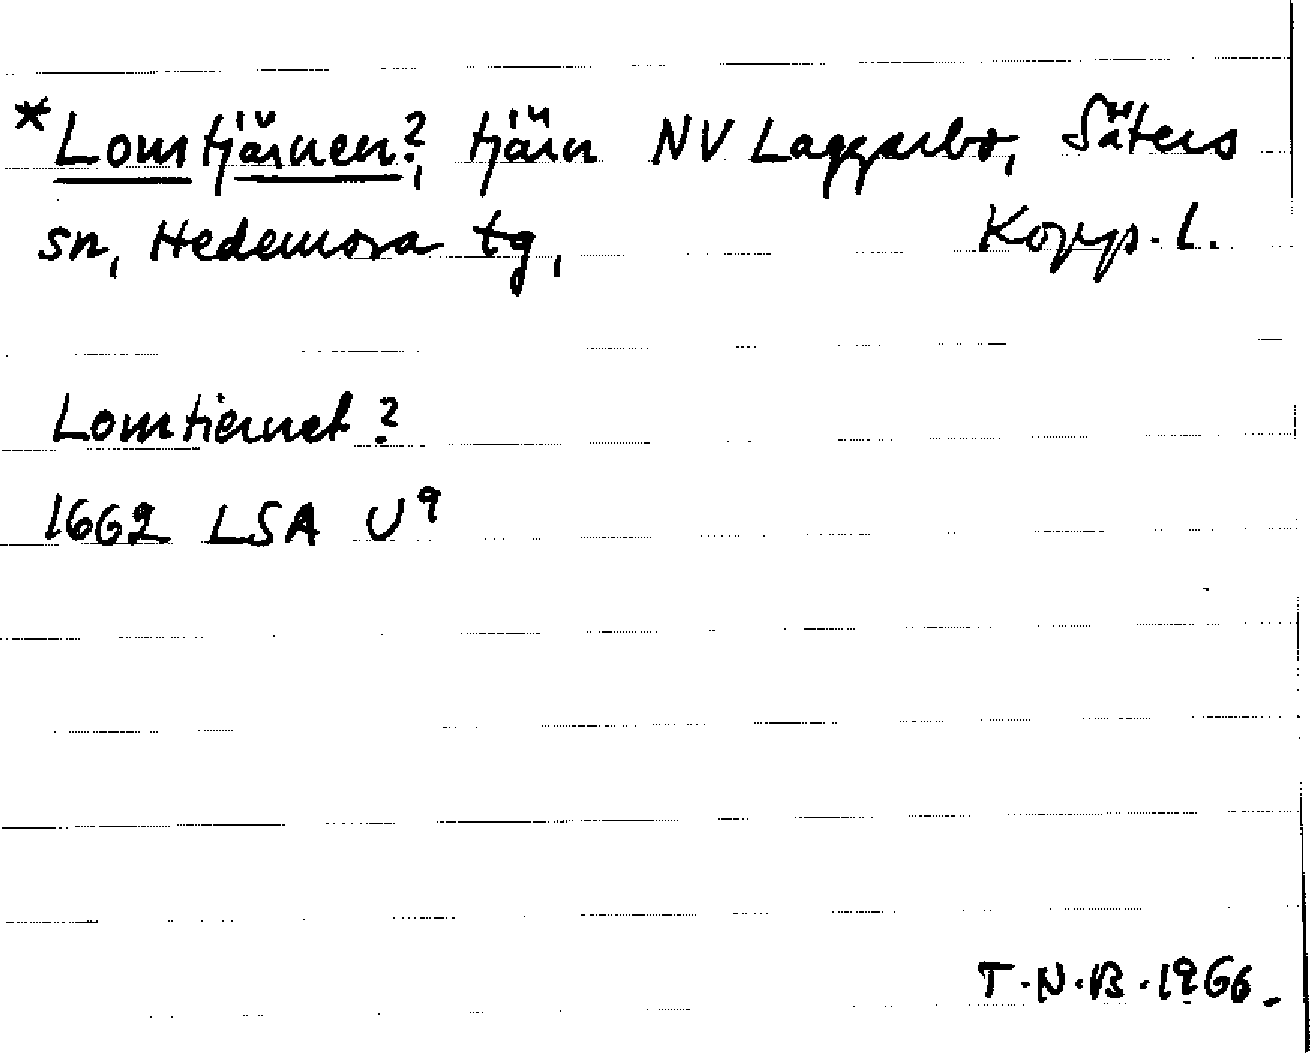 *Lomtjärnen?, tjärn NV Laggarbo, Säters
sn, Hedemora tg, Kopp. l.
Lomtiernet?
1662 LSA U9
T.N.B. 1966.